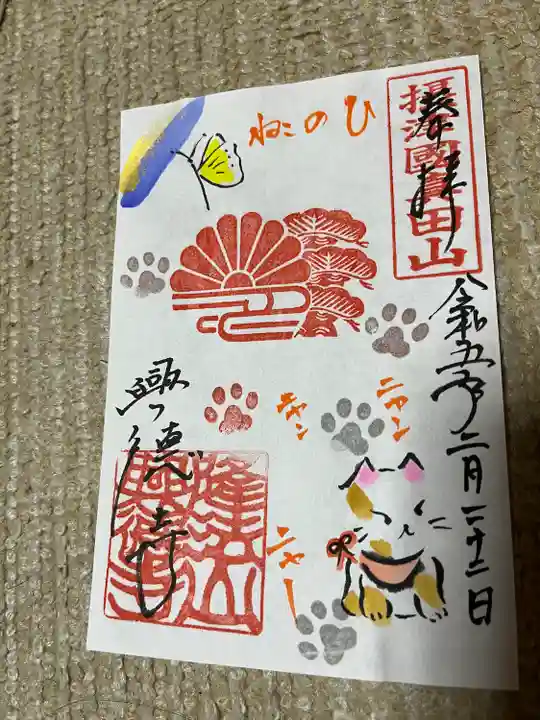 奉拝
摂津國寶田山
令和五年二月二十二日
ねこのひ
ニャン
ニャン
ニャー
興徳寺